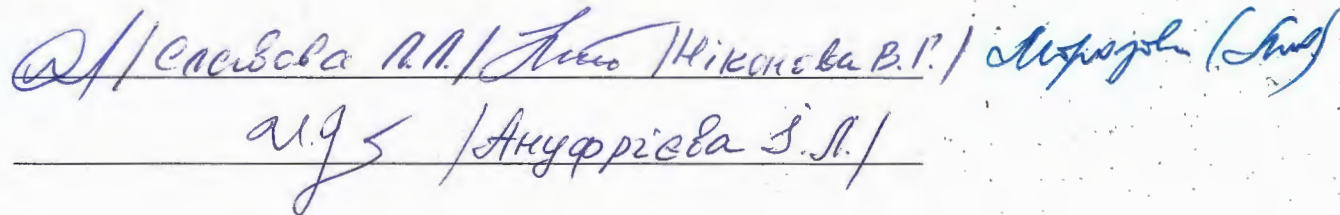 /Слєвова Л.Л./ /Ніконова В.Г./ Морозова
/Ануфрієва З.Л./